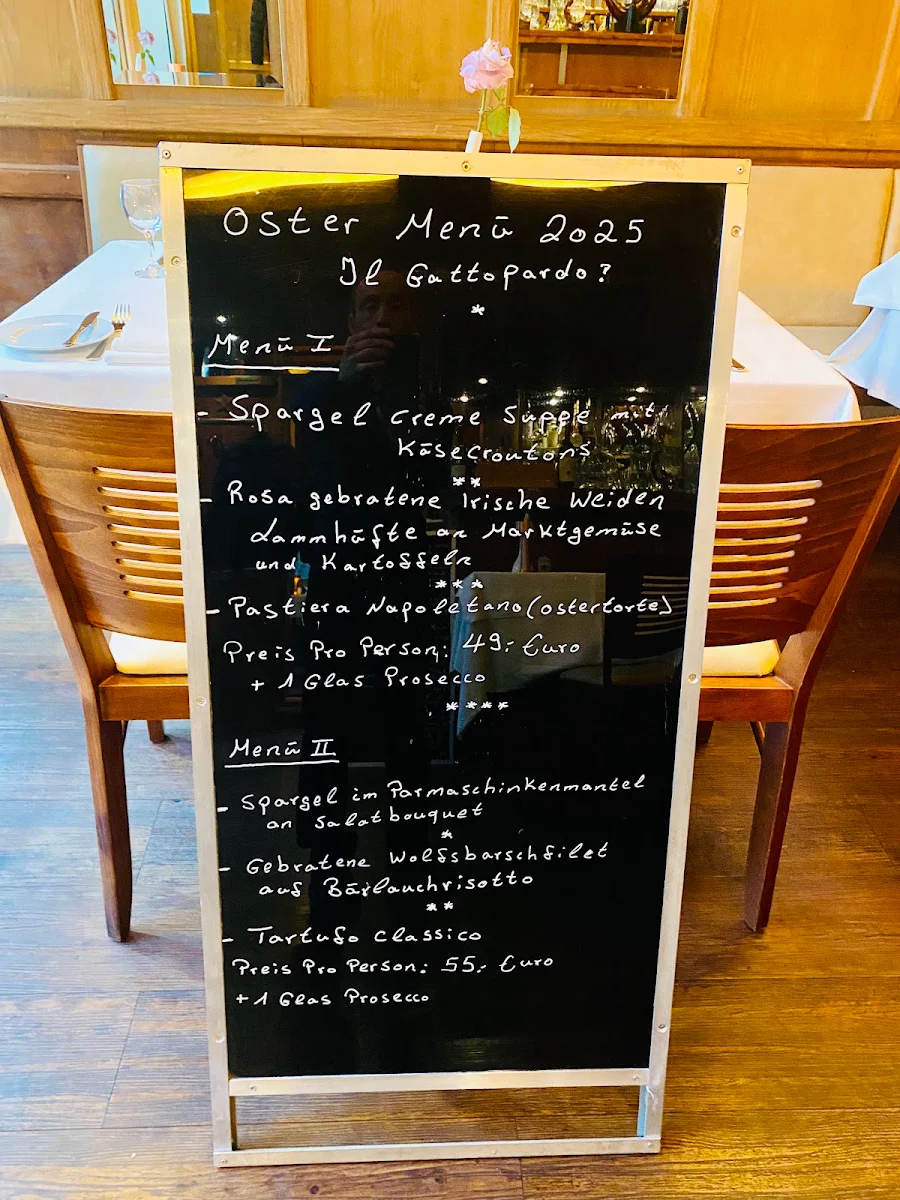 Oster Menü 2025
Il Gattopardo?
*
Menü I
- Spargel creme Suppe mit
Käsecroutons
**
- Rosa gebratene Irische Weiden
Lammhüfte an Marktgemüse
und Kartoffeln
***
- Pastiera Napoletano (ostertorte)
Preis Pro Person: 49.- Euro
+ 1 Glas Prosecco
****
Menü II
- Spargel im Parmaschinkenmantel
an Salatbouquet
*
- Gebratene Wolfsbarschfilet
auf Bärlauchrisotto
**
- Tartufo classico
Preis Pro Person: 55.- Euro
+ 1 Glas Prosecco